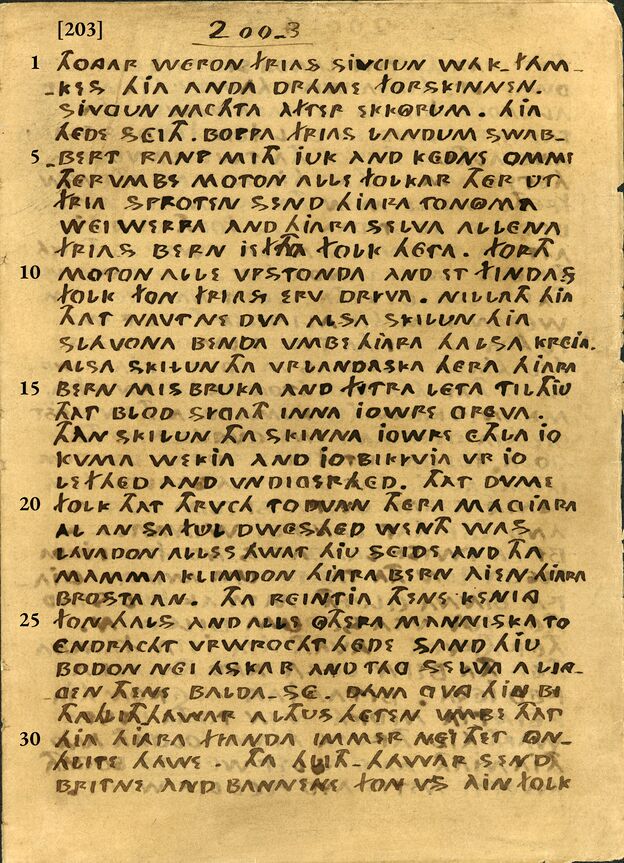 [203]
200-3
1 THOAAR WERON FRIAS SIVGUN WAK_ FAM_
_KES HIA ANDA DRAME FORSKINNEN.
SIVGUN NACHTA AFTER EKKORUM. HIA
HEDE SEITH. BOPPA FRIAS LANDUM SWAB_
5 _BERT RANP MITH IUK AND KEDNE OMME
THERVMBE MOTON ALLE FOLKAR THER UT
FRIA SPROTEN SEND HIARA TONOMA
WEI WERPA AND HIARA SELVA ALLENA
FRIAS BERN IEFTHA FOLK HETA. FORTH
10 MOTON ALLE VPSTONDA AND ET FINDAS
FOLK FON FRIAS ERV DRIVA. NILLATH HIA
THAT NAVT NE DVA ALSA SKILUN HIA
SLAVONA BENDA VMBE HIARA HALSA KREIA.
ALSA SKILUN THA VRLANDASKA HERA HIARA
15 BERN MISBRUKA AND FITRA LETA TIL THIU
THAT BLOD SIGATH INNA IOWRE GREVA.
THAN SKILUN THA SKINNA IOWRE ETHLA IO
KVMA WEKIA AND IO BIKIVIA VR IO
LEFHED AND VNDIGERHED. THAT DVME
20 FOLK THAT THRVCH TODVAN THERA MAGIARA
AL AN SA FUL DWESHED WENTH WAS
LAVADON ALLES HWAT HIU SEIDE AND THA
MAMMA KLIMDON HIARA BERN AIEN HIARA
BROSTA AN. THA REINTIA THENE KENING
25 FON HALS AND ALLE OTHERA MANNISKA TO
ENDRACHT VRWROCHT HEDE SAND HIU
BODON NEI ASKAR AND TAG SELVA ALIN_
GEN THENE BALDA_SE. DANA GVNG HIU BI
THA HLITHHAWAR ALTHUS HETEN VMBE THAT
30 HIA HIARA FIANDA IMMER NEI THET ON_
HLITE HAWE. THA HLITH_HAWAR SEND
BRITNE AND BANNENE FON VS AIN FOLK